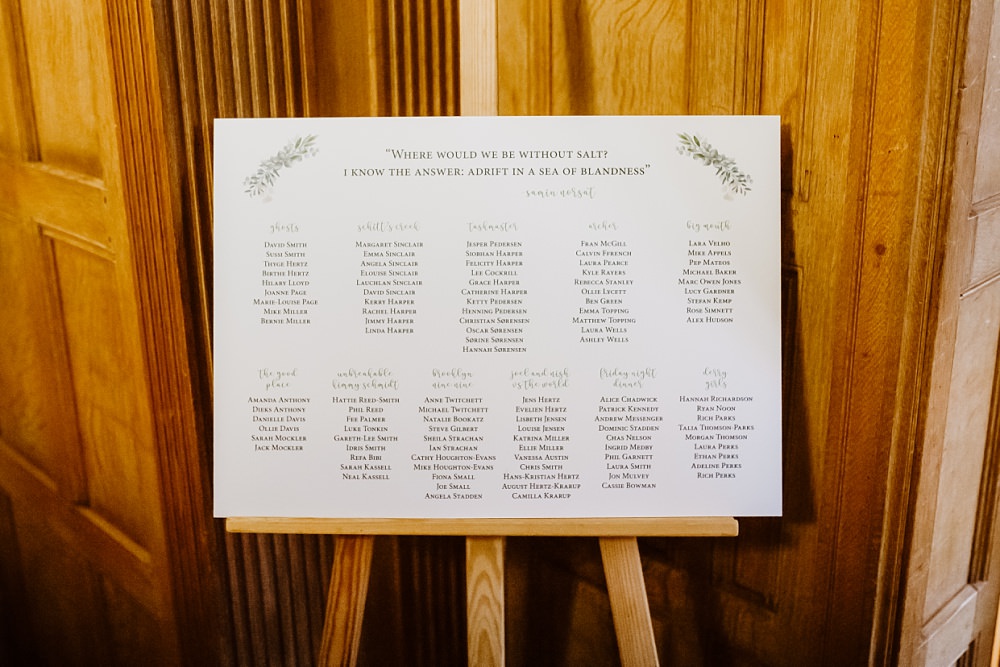 “Where would we be without salt?
I know the answer: adrift in a sea of blandness”
samin nosrat
ghosts
David Smith
Sussi Smith
Thyge Hertz
Birthe Hertz
Hilary Lloyd
Joanne Page
Marie-Louise Page
Mike Miller
Bernie Miller
schitt's creek
Margaret Sinclair
Emma Sinclair
Angela Sinclair
Elouise Sinclair
Lauchlan Sinclair
David Sinclair
Kerry Harper
Rachel Harper
Jimmy Harper
Linda Harper
taskmaster
Jesper Pedersen
Siobhan Harper
Felicity Harper
Lee Cockrill
Grace Harper
Catherine Harper
Ketty Pedersen
Henning Pedersen
Christian Sørensen
Oscar Sørensen
Sørine Sørensen
Hannah Sørensen
archer
Fran McGill
Calvin Ffrench
Laura Pearce
Kyle Rayers
Rebecca Stanley
Ollie Lycett
Ben Green
Emma Topping
Matthew Topping
Laura Wells
Ashley Wells
big mouth
Lara Velho
Mike Appels
Pep Mateos
Michael Baker
Marc Owen Jones
Lucy Gardner
Stefan Kemp
Rose Simnett
Alex Hudson
the good
place
Amanda Anthony
Dieks Anthony
Danielle Davis
Ollie Davis
Sarah Mockler
Jack Mockler
unbreakable
kimmy schmidt
Hattie Reed-Smith
Phil Reed
Fee Palmer
Luke Tonkin
Gareth-Lee Smith
Idris Smith
Refa Bibi
Sarah Kassell
Neal Kassell
brooklyn
nine nine
Anne Twitchett
Michael Twitchett
Natalie Bookatz
Steve Gilbert
Sheila Strachan
Ian Strachan
Cathy Houghton-Evans
Mike Houghton-Evans
Fiona Small
Joe Small
Angela Stadden
joel and nish
vs the world
Jens Hertz
Evelien Hertz
Lisbeth Jensen
Louise Jensen
Katrina Miller
Ellie Miller
Vanessa Austin
Chris Smith
Hans-Kristian Hertz
August Hertz-Krarup
Camilla Krarup
friday night
dinner
Alice Chadwick
Patrick Kennedy
Andrew Messenger
Dominic Stadden
Chas Nelson
Ingrid Medby
Phil Garnett
Laura Smith
Jon Mulvey
Cassie Bowman
derry
girls
Hannah Richardson
Ryan Noon
Rich Parks
Talia Thomson-Parks
Morgan Thomson
Laura Perks
Ethan Perks
Adeline Perks
Rich Perks